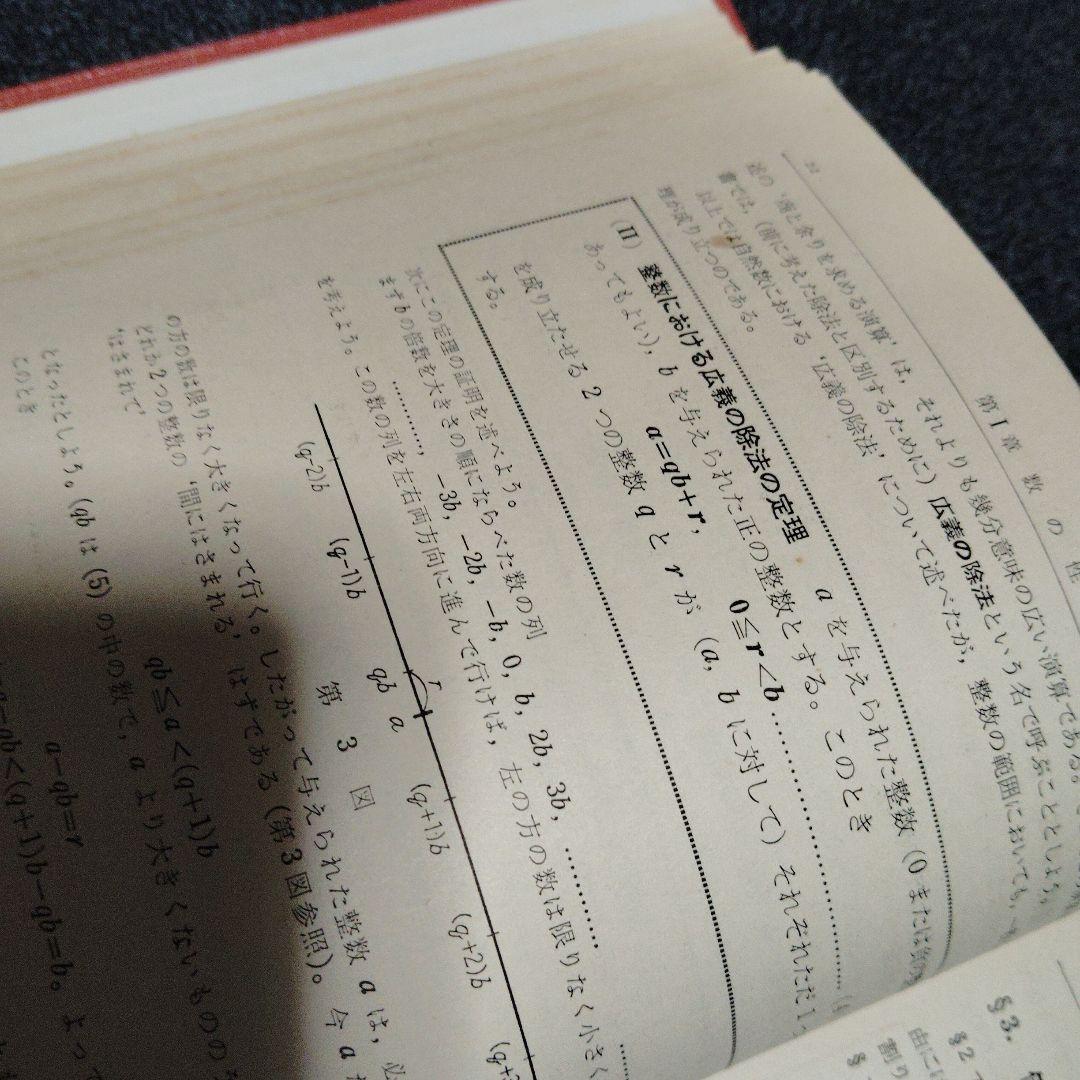 22 第 1 章 数 の 性
述の '商と余りを求める演算' は, それよりも幾分意味の広い演算である。
書では, (前に考えた除法と区別するために) 広義の除法という名で呼ぶこととしよう。
以上では自然数における '広義の除法' について述べたが, 整数の範囲においても,
理が成り立つのである。
(II) 整数における広義の除法の定理 a を与えられた整数 (0 または
あってもよい), b を与えられた正の整数とする。このとき
a=qb+r, 0≦r<b
を成り立たせる 2 つの整数 q と r が (a, b に対して) それぞれただ1
する。
次にこの定理の証明を述べよう。
まず b の倍数を大きさの順にならべた数の列
…………, −3b, −2b, −b, 0, b, 2b, 3b, …………
を考えよう。この数の列を左右両方向に進んで行けば, 左の方の数は限りなく小さく
r
(q-2)b (q-1)b qb a (q+1)b (q+2)b
第 3 図
の方の数は限りなく大きくなって行く。したがって与えられた整数 a は, 必
どれか2つの整数の '間にはさまれる' はずである (第3図参照)。今 a
'はさまれて'
qb≦a<(q+1)b
となったとしよう。(qb は (5) の中の数で, a より大きくないものの
このとき
a−qb=r
a−qb<(q+1)b−qb=b。 よって
§3.
§2
由に
割り
§